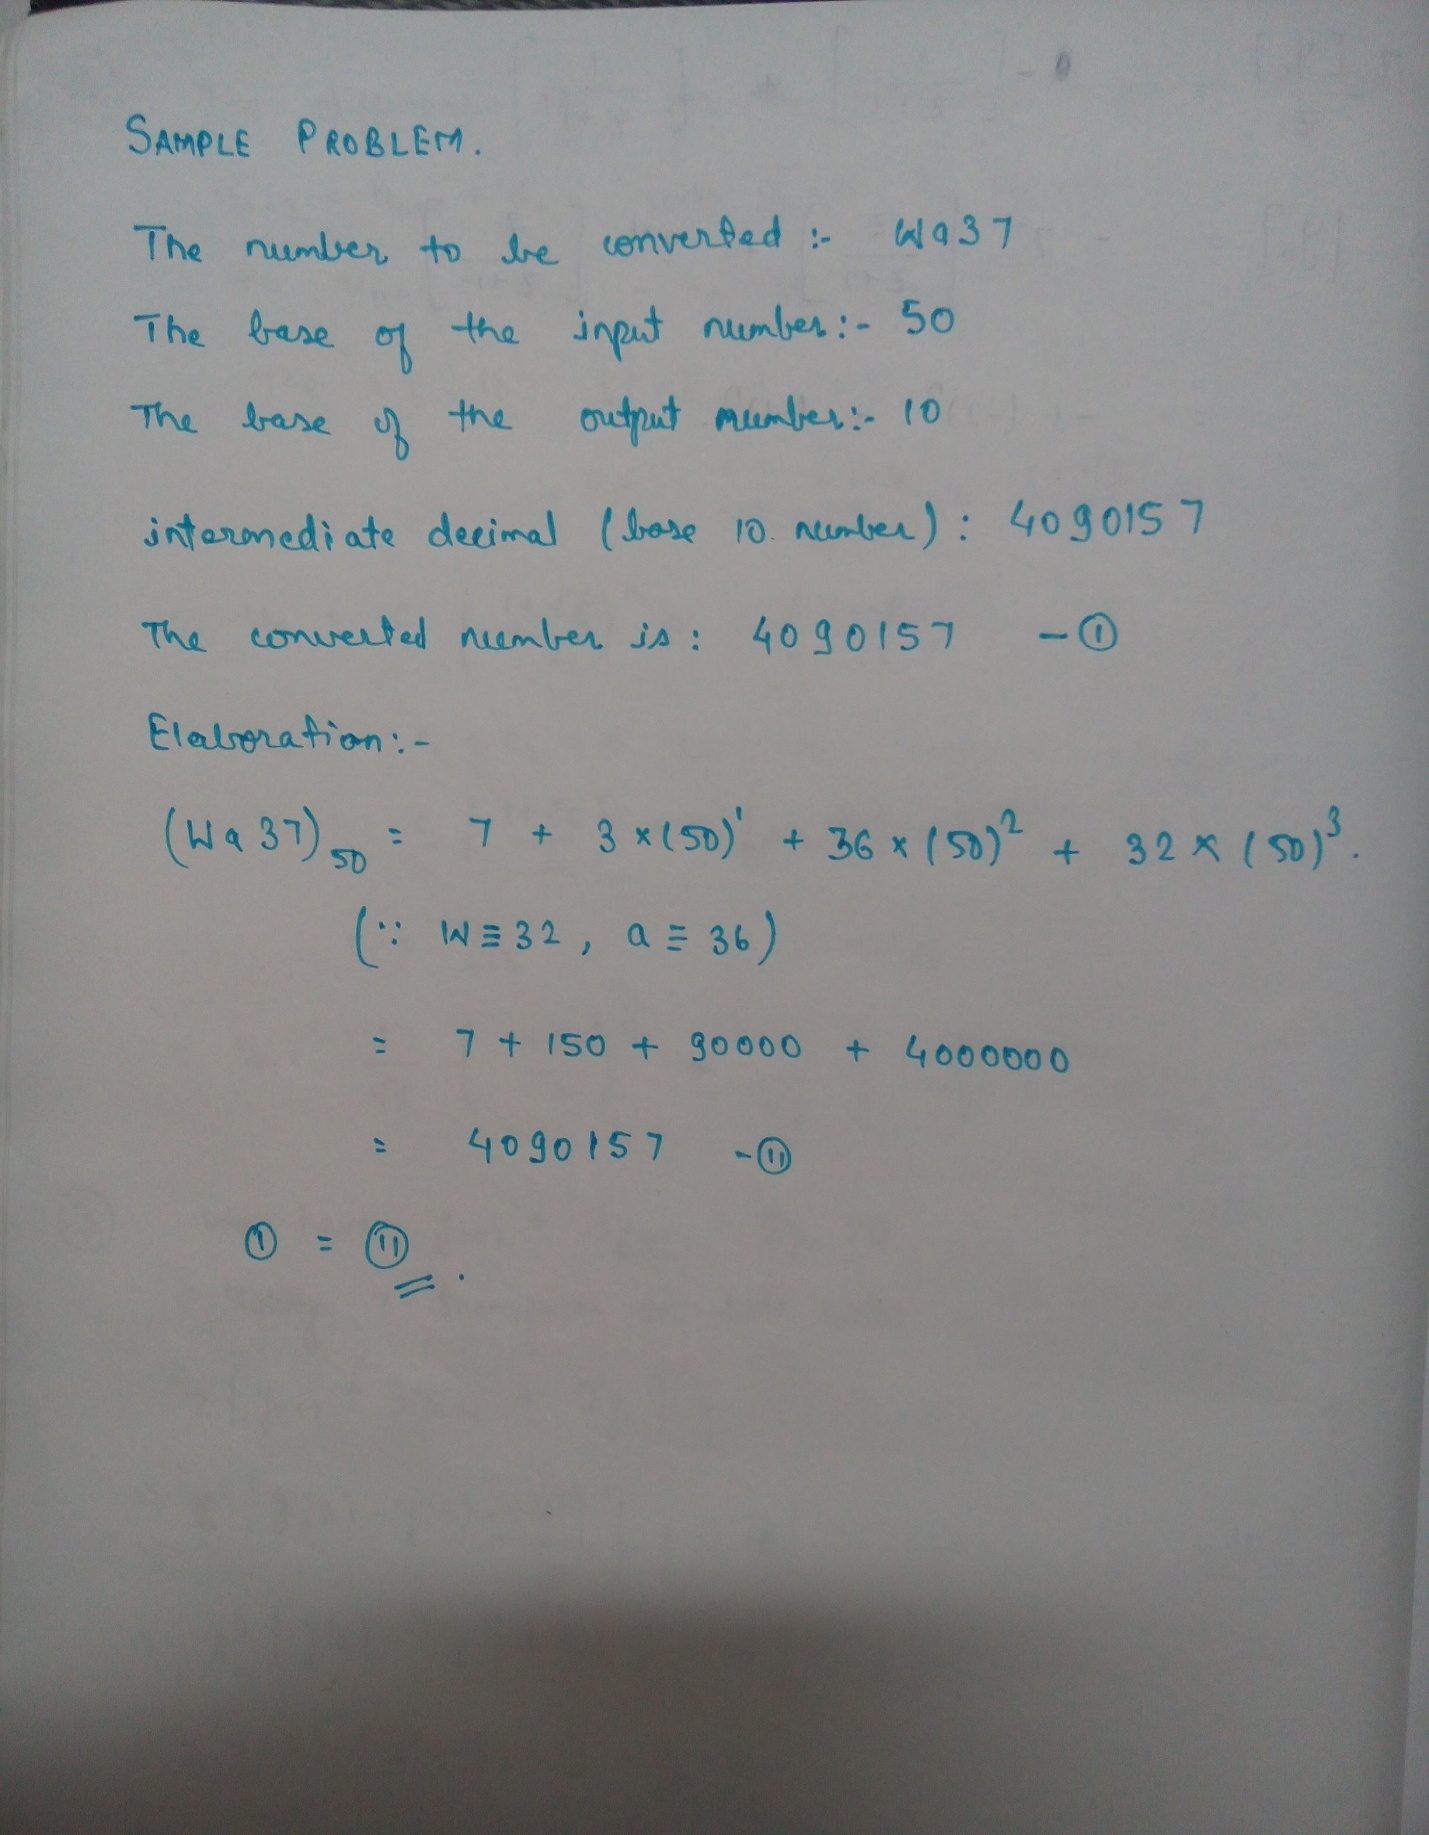 SAMPLE PROBLEM.
The number to be converted :- Wa37
The base of the input number:- 50
The base of the output number:- 10
intermediate decimal (base 10. number) : 4090157
The converted number is : 4090157 - ①
Elaboration:-
(Wa37)₅₀ = 7 + 3 × (50)¹ + 36 × (50)² + 32 × (50)³.
(∵ W ≡ 32, a ≡ 36)
= 7 + 150 + 90000 + 4000000
= 4090157 - ⑪
① = ⑪.